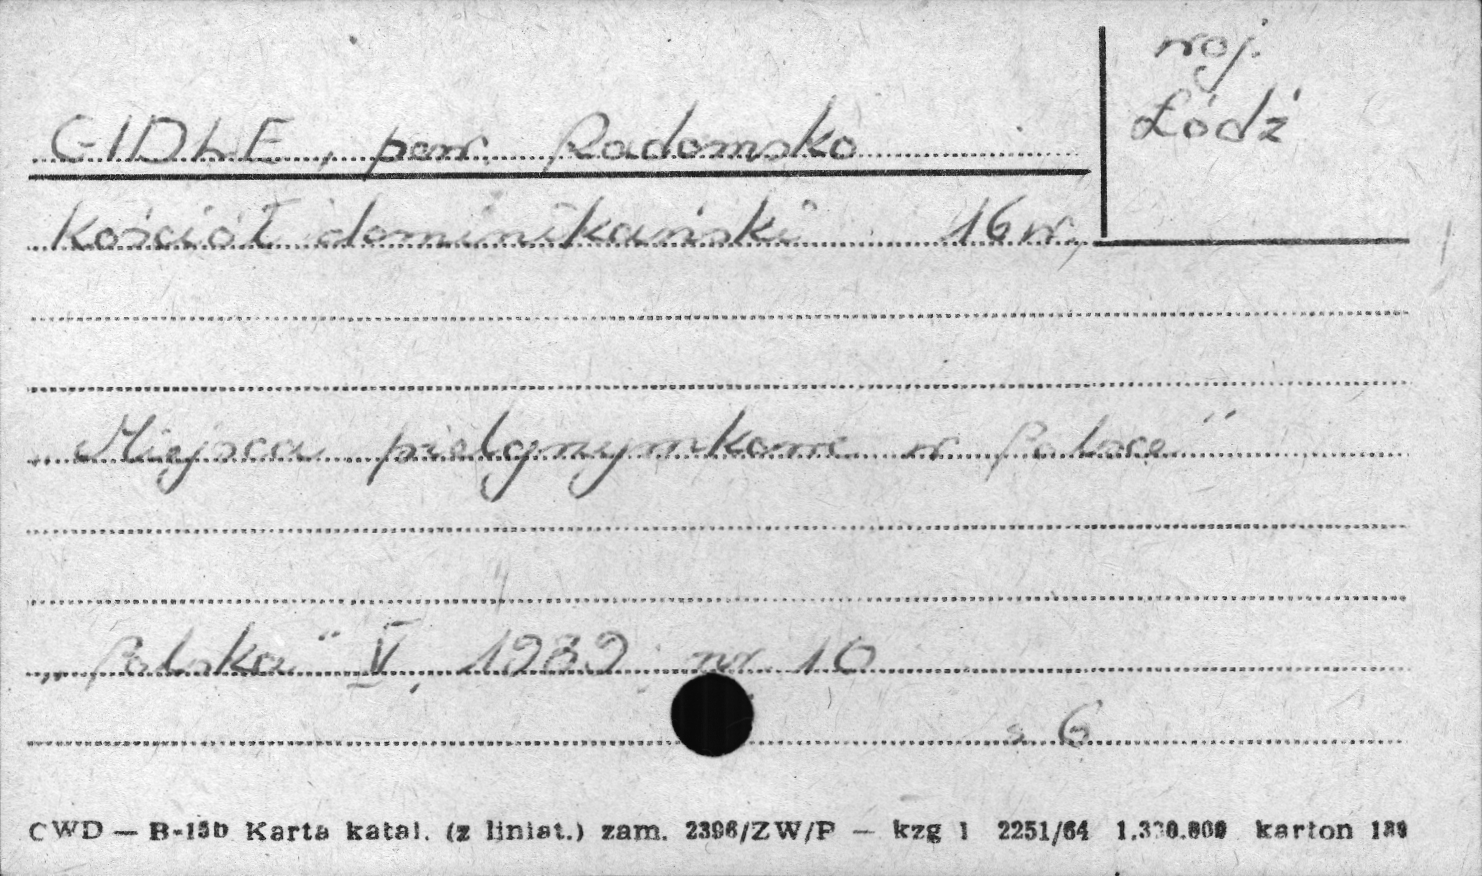 woj.
Łódź
GIDLE, pow. Radomsko
Kościół dominikański 16 w.,
„Miejsca pielgrzymkowe w Polsce"
„Polska" V, 1939 nr. 10
s. 6
CWD — B-15b Karta katal. (z liniat.) zam. 2396/ZW/P — kzg 1 2251/64 karton